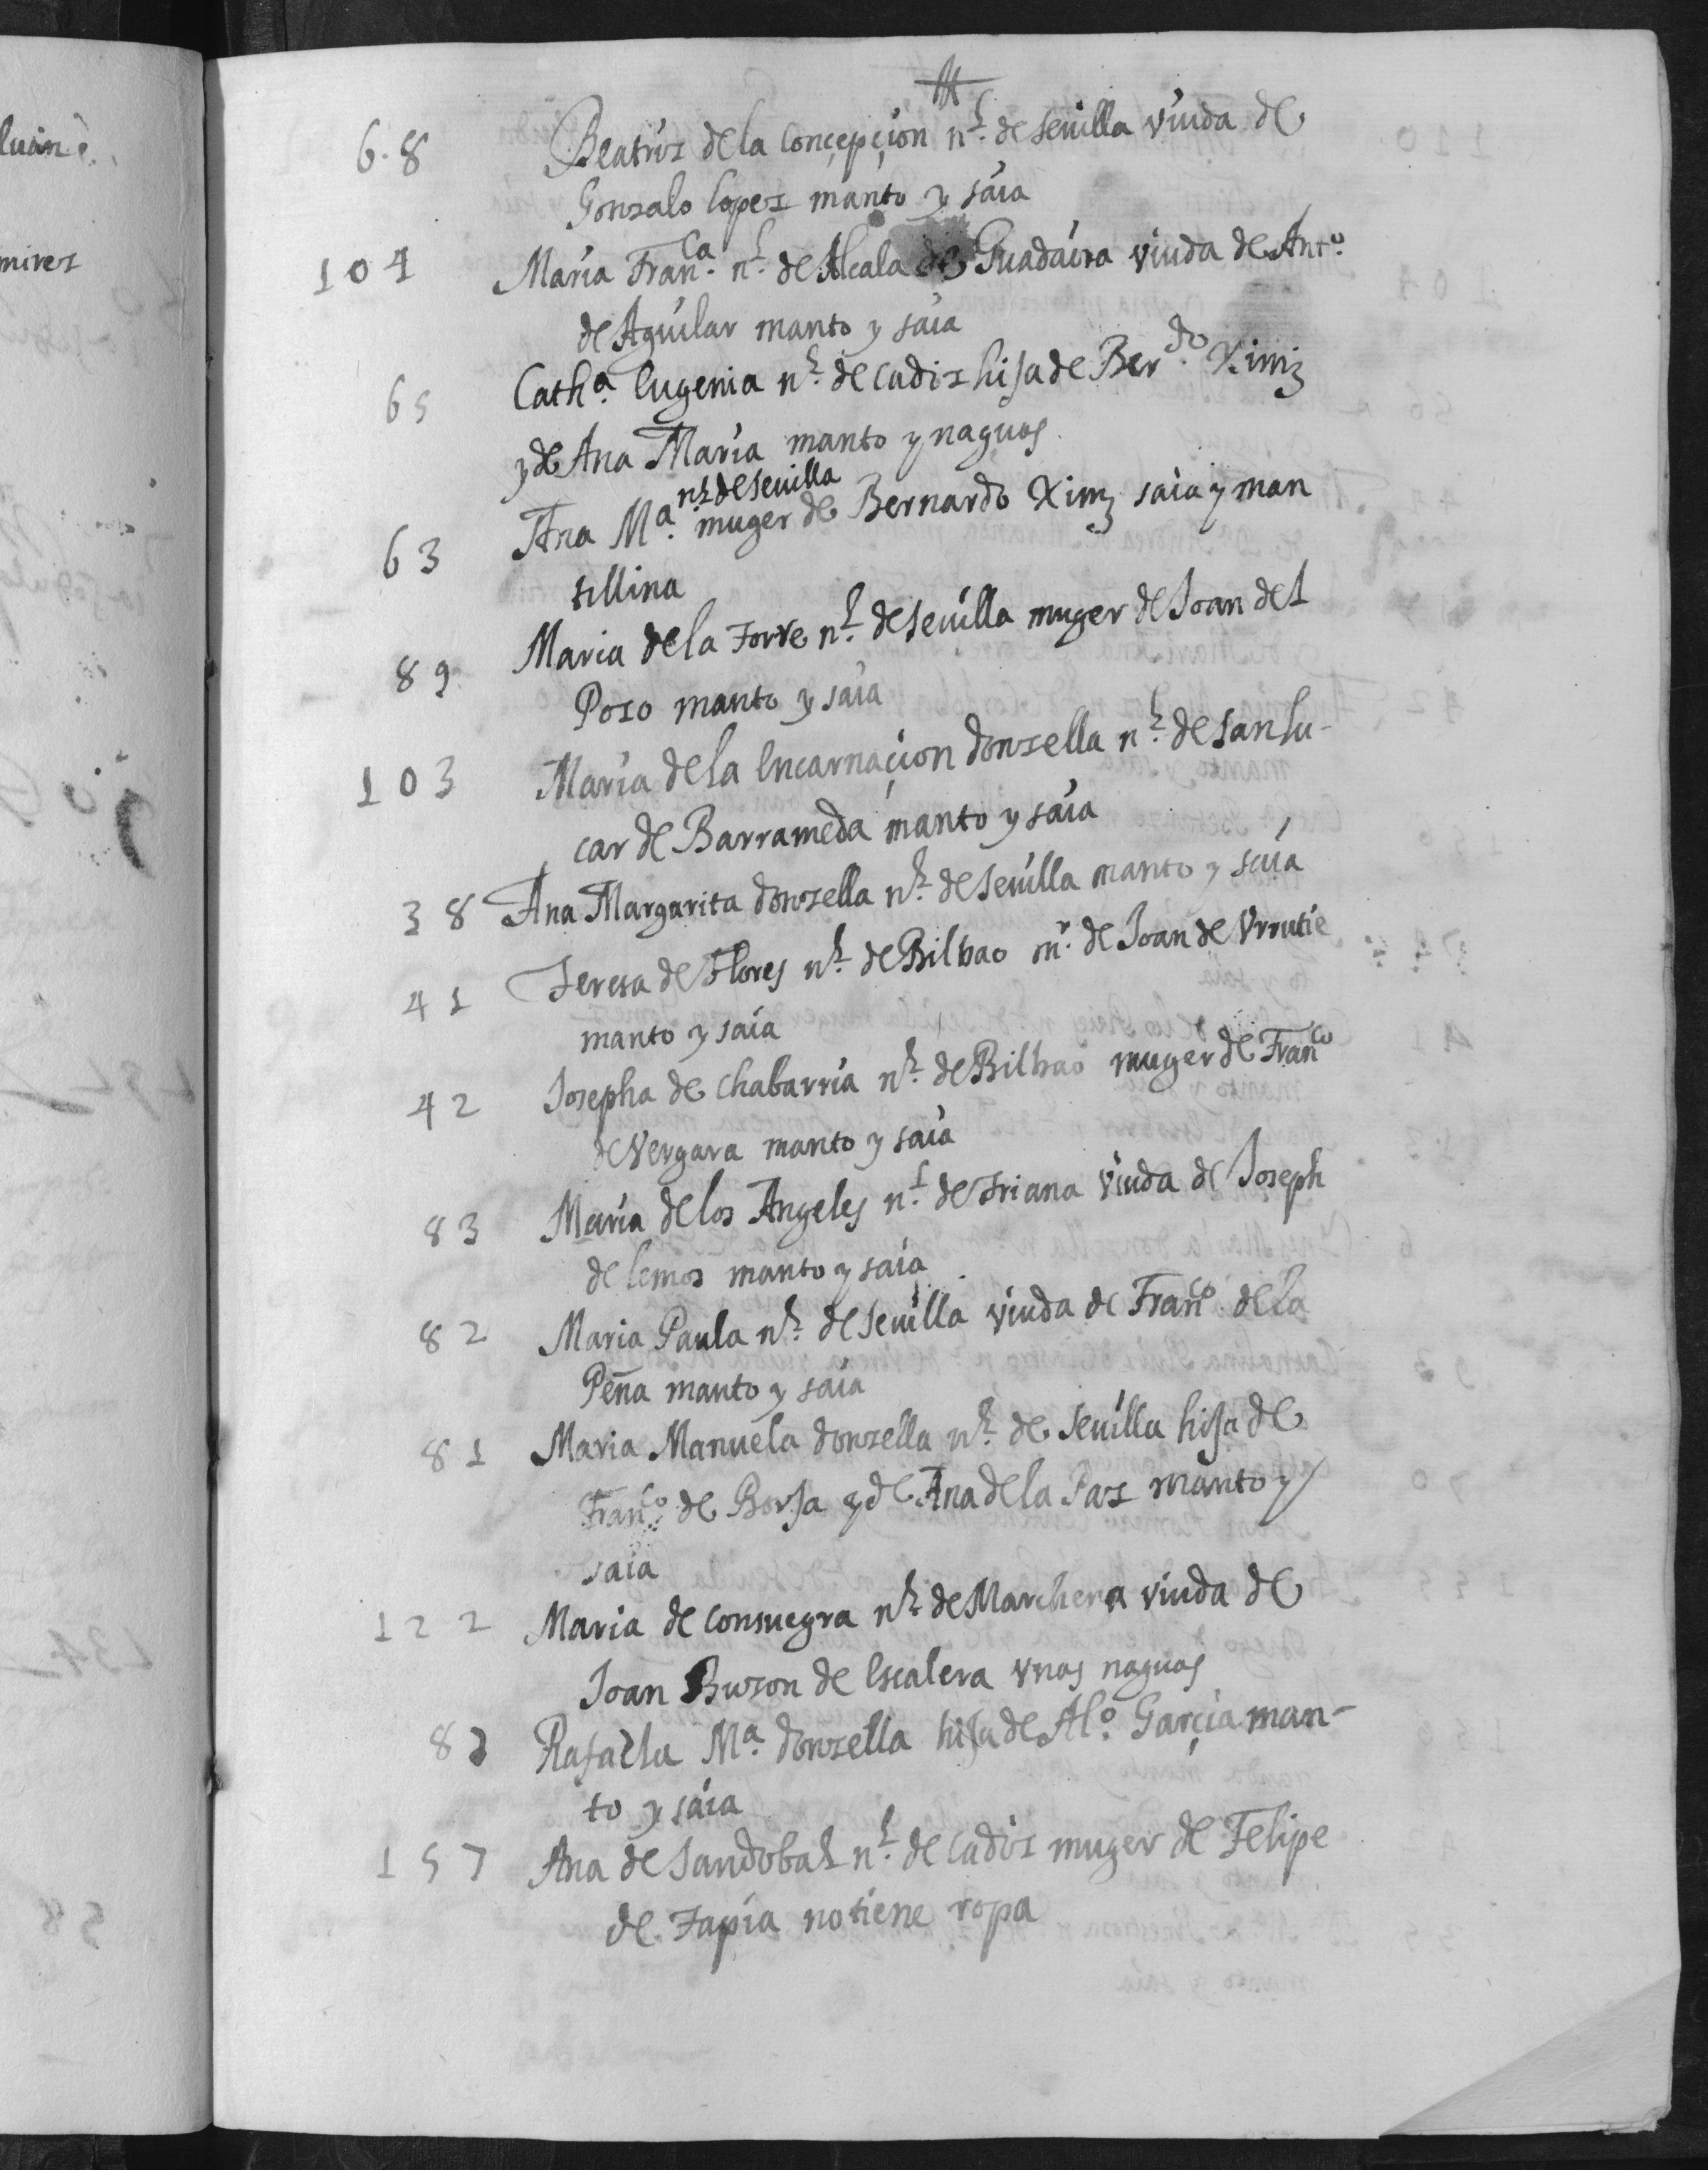 6.8 Beatris de la Conçepçion n.l de seuilla viuda de
Gonsalo lopes manto y saia
104 Maria Fran.ca n.l de Alcala de Guadaira viuda de Ant.o
de Aguilar manto y saia
65 Cath.a Eugenia n.l de Cadis hija de Ber.do Ximz
y de Ana Maria manto y naguas
n.l de seuilla
63 Ana M.a muger de Bernardo Ximz saia y man
tillina
89 Maria de la torre n.l de seuilla muger de Joan del
Poso manto y saia
103 Maria de la Encarnaçion donsella n.l de sanlu-
car de Barrameda manto y saia
38 Ana Margarita donsella n.l de seuilla manto y saia
41 Teresa de Flores n.l de Bilbao m.r de Joan de Vrrutie
manto y saia
42 Josepha de chabarria n.l de Bilbao muger de Fran.co
de Vergara manto y saia
83 Maria de los Angeles n.l de triana viuda de Joseph
de lemos manto y saia
82 Maria Paula n.l de seuilla viuda de Fran.co de la
Peña manto y saia
81 Maria Manuela donsella n.l de seuilla hija de
Fran.co de Borja y de Ana de la Pas manto y
saia
122 Maria de consuegra n.l de Marchena viuda de
Joan Buson de Escalera vnas naguas
82 Rafaela M.a donsella hija de Al.o Garçia man-
to y saia
157 Ana de Sandobal n.l de Cadis muger de Felipe
de tapia no tiene ropa